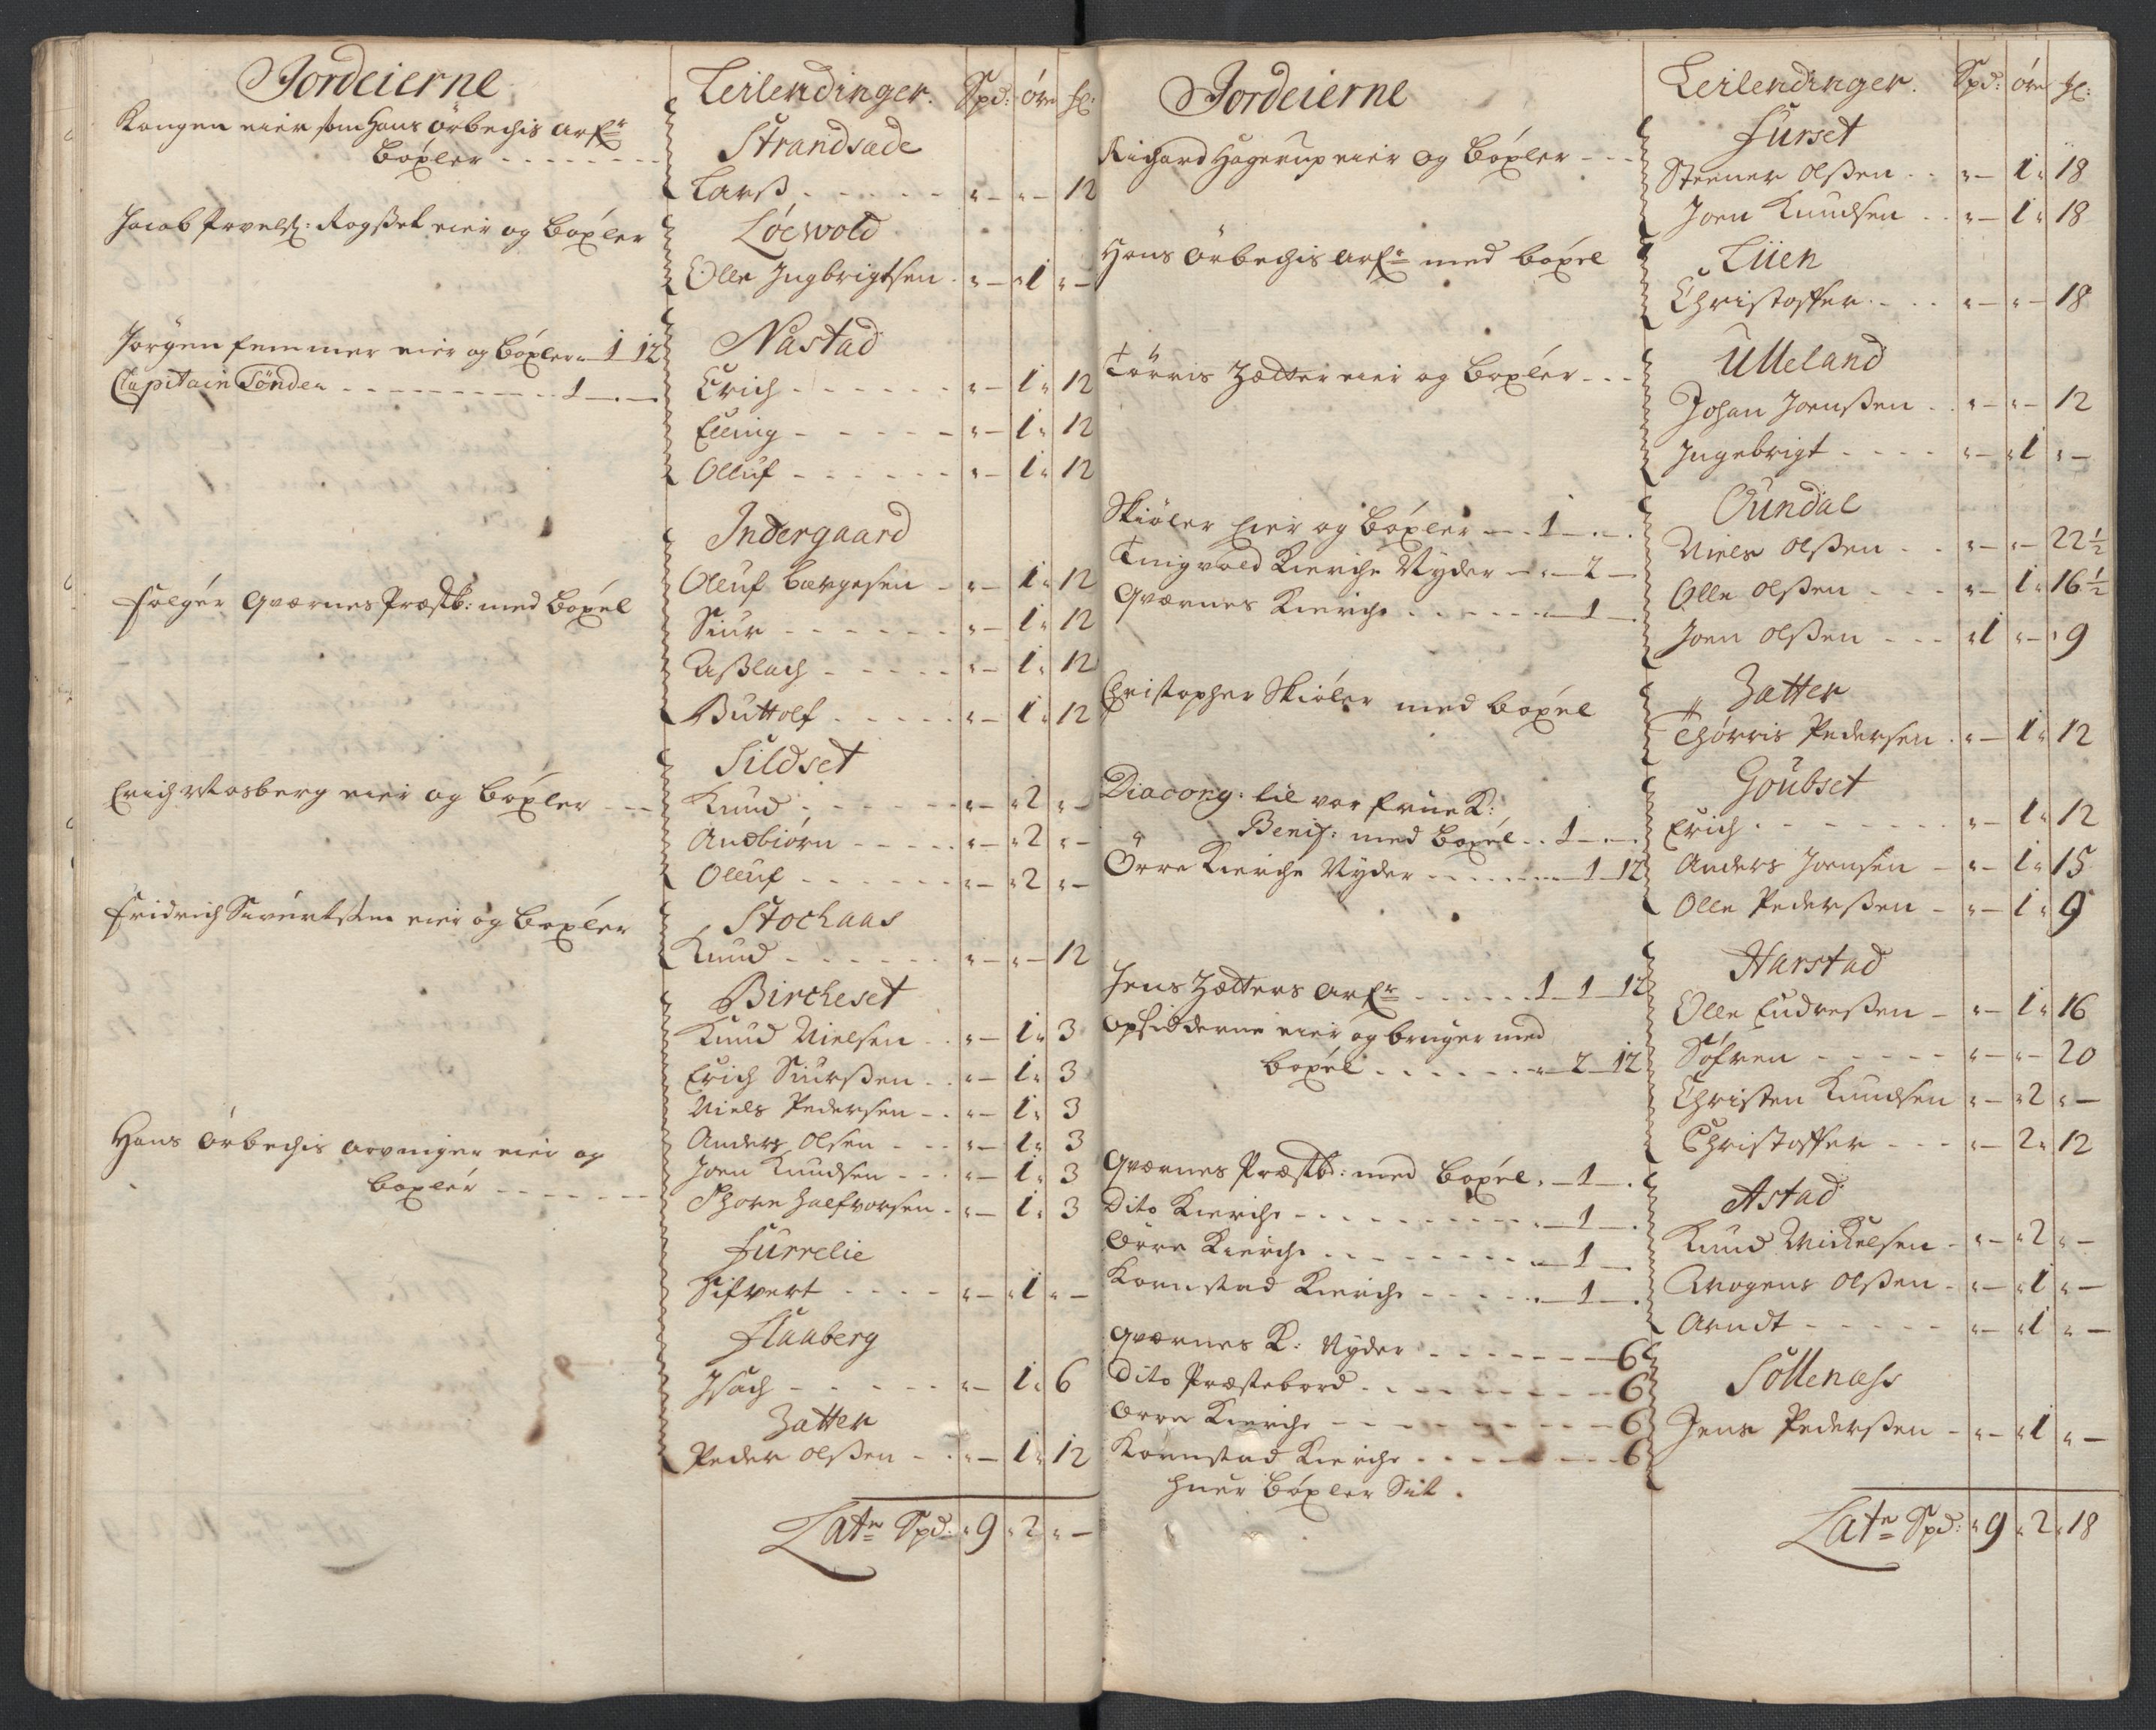 Jordeierne
Kongen eier som Hans Örbechis arfr
böxler
Jacob Povels: Rogset eier og böxler
Jörgen femmer eier og böxler " 1 12
Capitain Tönder 1 — . —
følger Qværnes Præstb: med böxel
Erich Mosberg eier og böxler
Fridrich Sivertsen eier og böxler
Hans Örbechis arvinger eier og
böxler
Leilendinger. Spd: öre hl:
Strandsade
Lars " — " — 12
Löewold
Olle Ingbrigtsen " — " 1 " —
Nastad
Erich " — 1 " 12
Elling " — 1 " 12
Olluf " — 1 " 12
Indergaard
Oluf Børgesen " — 1 " 12
Siur " — 1 " 12
Asslach " — 1 " 12
Buttolf " — 1 " 12
Sildset
Knud " — " 2 " —
Andbiörn " — " 2 " —
Oluf " — " 2 " —
Stochaas
Knud " — " — 12
Bircheset
Knud Nielsen " — 1 " 3
Erich Siurssen " — 1 " 3
Niels Pedersen " — 1 " 3
Anders Olsen " — 1 " 3
Joen Knudsen " — 1 " 3
Thore Halfvorsen " — 1 " 3
Furrelie
Sifvert " — " 1 " —
Flaaberg
Isach " — 1 " 6
Zatter
Peder Olssen " — 1 " 12
Latr Spd: " 9 " 2 " —
Jordeierne
Richard Hagerup eier og böxler
Hans Örbechis arfr med böxel
Törris Zætter eier og böxler
Skiöler eier og böxler 1 — " — "
Tingvold Kierche Nyder " — 2 —
Qværnes Kierche " — 1 —
Christopher Skiöler med böxel
Diacong: til vor frue K:
Benif: med böxel 1 — " —
Örre Kierche Nyder " — 1 12
Jens Zætters arfr 1 1 12
Opsidderne eier og bruger med
böxel " — 2 12
Qværnes Præstb: med böxel " — 1 —
Dito Kierche " — 1 —
Örre Kierche " — 1 —
Kornstad Kierche " — 1 —
Qværnes K: Nyder 6
Dito Præstebord 6
Örre Kierche 6
Kornstad Kierche 6
huer böxler Sit.
Leilendinger. Spd: öre hl:
Furset
Steener Olssen " — 1 " 18
Joen Knudsen " — 1 " 18
Liien
Christoffer " — " — 18
Ulleland
Johan Joenssen " — " — 12
Ingebrigt " — " 1 " —
Oundal
Niels Olssen " — " — 22½
Olle Olssen " — 1 " 16½
Joen Olssen " 1 " — " 9
Zatter
Thörris Pedersen " — 1 " 12
Goubset
Erich " — 1 " 12
Anders Joensen " — 1 " 15
Olle Pederssen " — 1 " 9
Harstad
Olle Endressen " — 1 " 16
Söfren " — " — 20
Christen Knudsen " — " 2 " —
Christoffer " — 2 " 12
Astad
Knud Mickelsen " — " 2 " —
Mogens Olssen " — " 1 " —
Arndt " — " 1 " —
Söllenæss
Jens Pederssen " — " 1 " —
Latr Spd: " 9 " 2 " 18